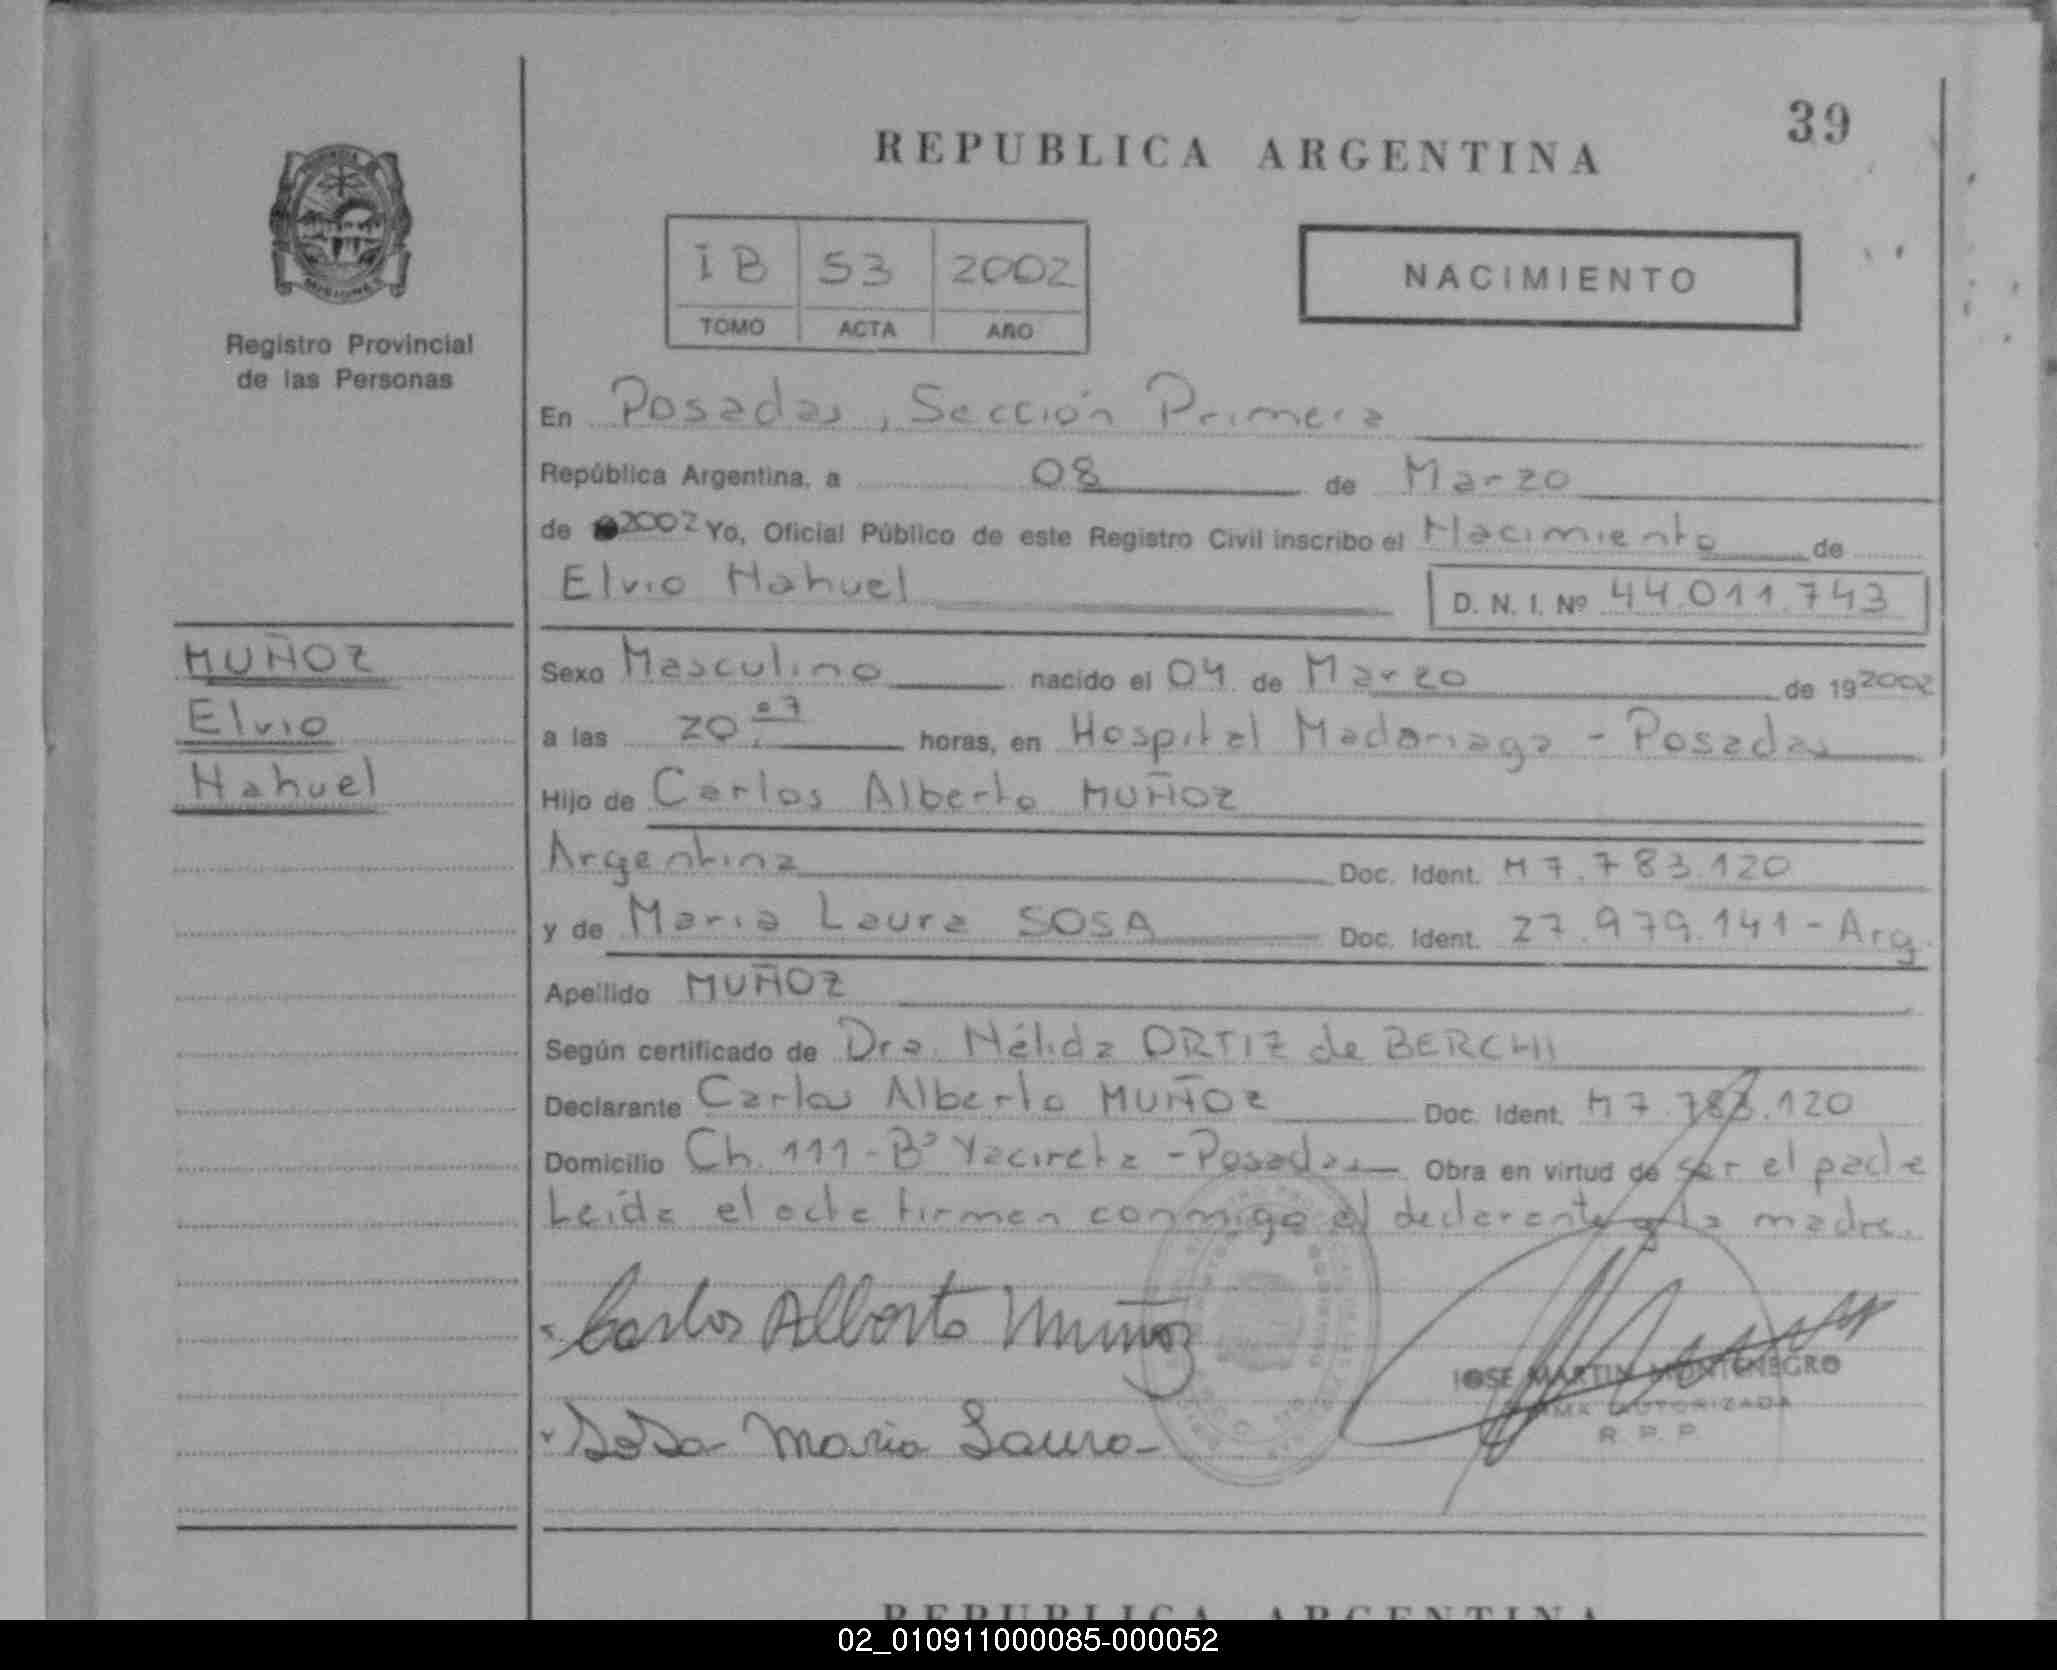 39
REPUBLICA ARGENTINA
IB 53 2002
TOMO ACTA AÑO
NACIMIENTO
Registro Provincial
de las Personas
En Posadas, Sección Primera
República Argentina, a 08 de Marzo
de 2002 Yo, Oficial Público de este Registro Civil inscribo el Nacimiento de
Elvio Nahuel D. N. I. Nº 44.011.743
MUÑOZ
Elvio
Nahuel
Sexo Masculino nacido el 04 de Marzo de 19 2002
a las 20.07 horas, en Hospital Madariaga - Posadas
Hijo de Carlos Alberto MUÑOZ
Argentina Doc. Ident. M 7.783.120
y de Maria Laura SOSA Doc. Ident. 27.979.141 - Arg.
Apellido MUÑOZ
Según certificado de Dra. Nélida ORTIZ de BERCHI
Declarante Carlos Alberto MUÑOZ Doc. Ident. M 7.783.120
Domicilio Ch. 111 - Bº Yacireta - Posadas Obra en virtud de ser el padre
Leída el acta firman conmigo el declarante y la madre.
Carlos Alberto Muñoz
Sosa Maria Laura
JOSE MARTIN MONTENEGRO
FIRMA AUTORIZADA
R. P. P.
REPUBLICA ARGENTINA
02_010911000085-000052